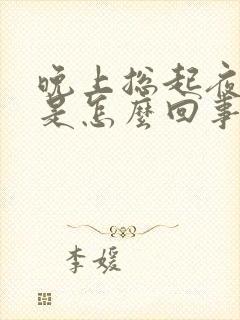 晚上总起夜
是怎麼回事
李媛